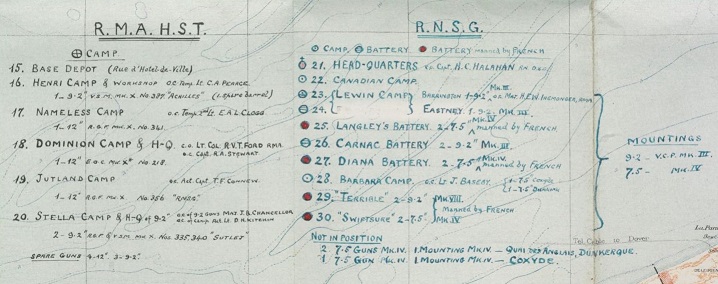 R.M.A. H.S.T.
CAMP
15. BASE DEPOT (Rue d'Hotel-de-Ville)
16. HENRI CAMP & WORKSHOP o.c. Temp. Lt. C.A. PEARCE
1-9.2" V.S.M. MK. X. No. 387 "ACHILLES"
17. NAMELESS CAMP o.c. Temp. 2nd Lt. E.A.L. CLOGG
1-12" MK. X No. 361
18. DOMINION CAMP & H-Q. C.O. Lt Col. R.V.T. FORD RMA.
o.c. Capt. R.A. STEWART
1-12" E.O.C. MK. X* No 218.
19. JUTLAND CAMP o.c. Act. Capt. T.F.
1-12" MK. X No 356
20. STELLA CAMP & H-Q of 9.2" o.c. of 9.2 Guns MAJ. J.B. CHANCELLOR
o.c. of Camp. Act. Lt. D.H. KITCHIN
2-9.2" R.G.F. & V.S.M. MK. X. Nos. 335, 340 "SUTLEJ"
SPARE GUNS 4-12" 3-9.2"
R.N.S.G.
CAMP, BATTERY BATTERY manned by FRENCH
21. HEAD-QUARTERS Capt. H.C. HALAHAN R.N. D.S.O.
22. CANADIAN CAMP.
23. LEWIN CAMP BARRINGTON 1-9.2" MK.III. o.c. Maj. H.E.W. IREMONGER, RMA
24. EASTNEY. 1-9.2" MK. III.
25. LANGLEY'S BATTERY. 2-7.5" MK.IV manned by FRENCH
26. CARNAC BATTERY 2-9.2" MK III.
27. DIANA BATTERY. 2-7.5" MK.IV. manned by FRENCH
28. BARBARA CAMP. o.c. Lt J. BASEBY. 1-7.5
1-7.5
29. "TERRIBLE" 2-9.2" MK VIII.
Manned by FRENCH
30. "SWIFTSURE" 2-7.5" MK.IV
MOUNTINGS
9.2 - V.C.P. MK. III.
7.5 - MK. IV
NOT IN POSITION
2 7.5" GUNS MK. IV. 1. MOUNTING MK.IV. — QUAI DES ANGLAIS, DUNKERQUE.
1 7.5" GUN MK. IV 1. MOUNTING MK.IV — COXYDE.
Tel. Cable to Dover